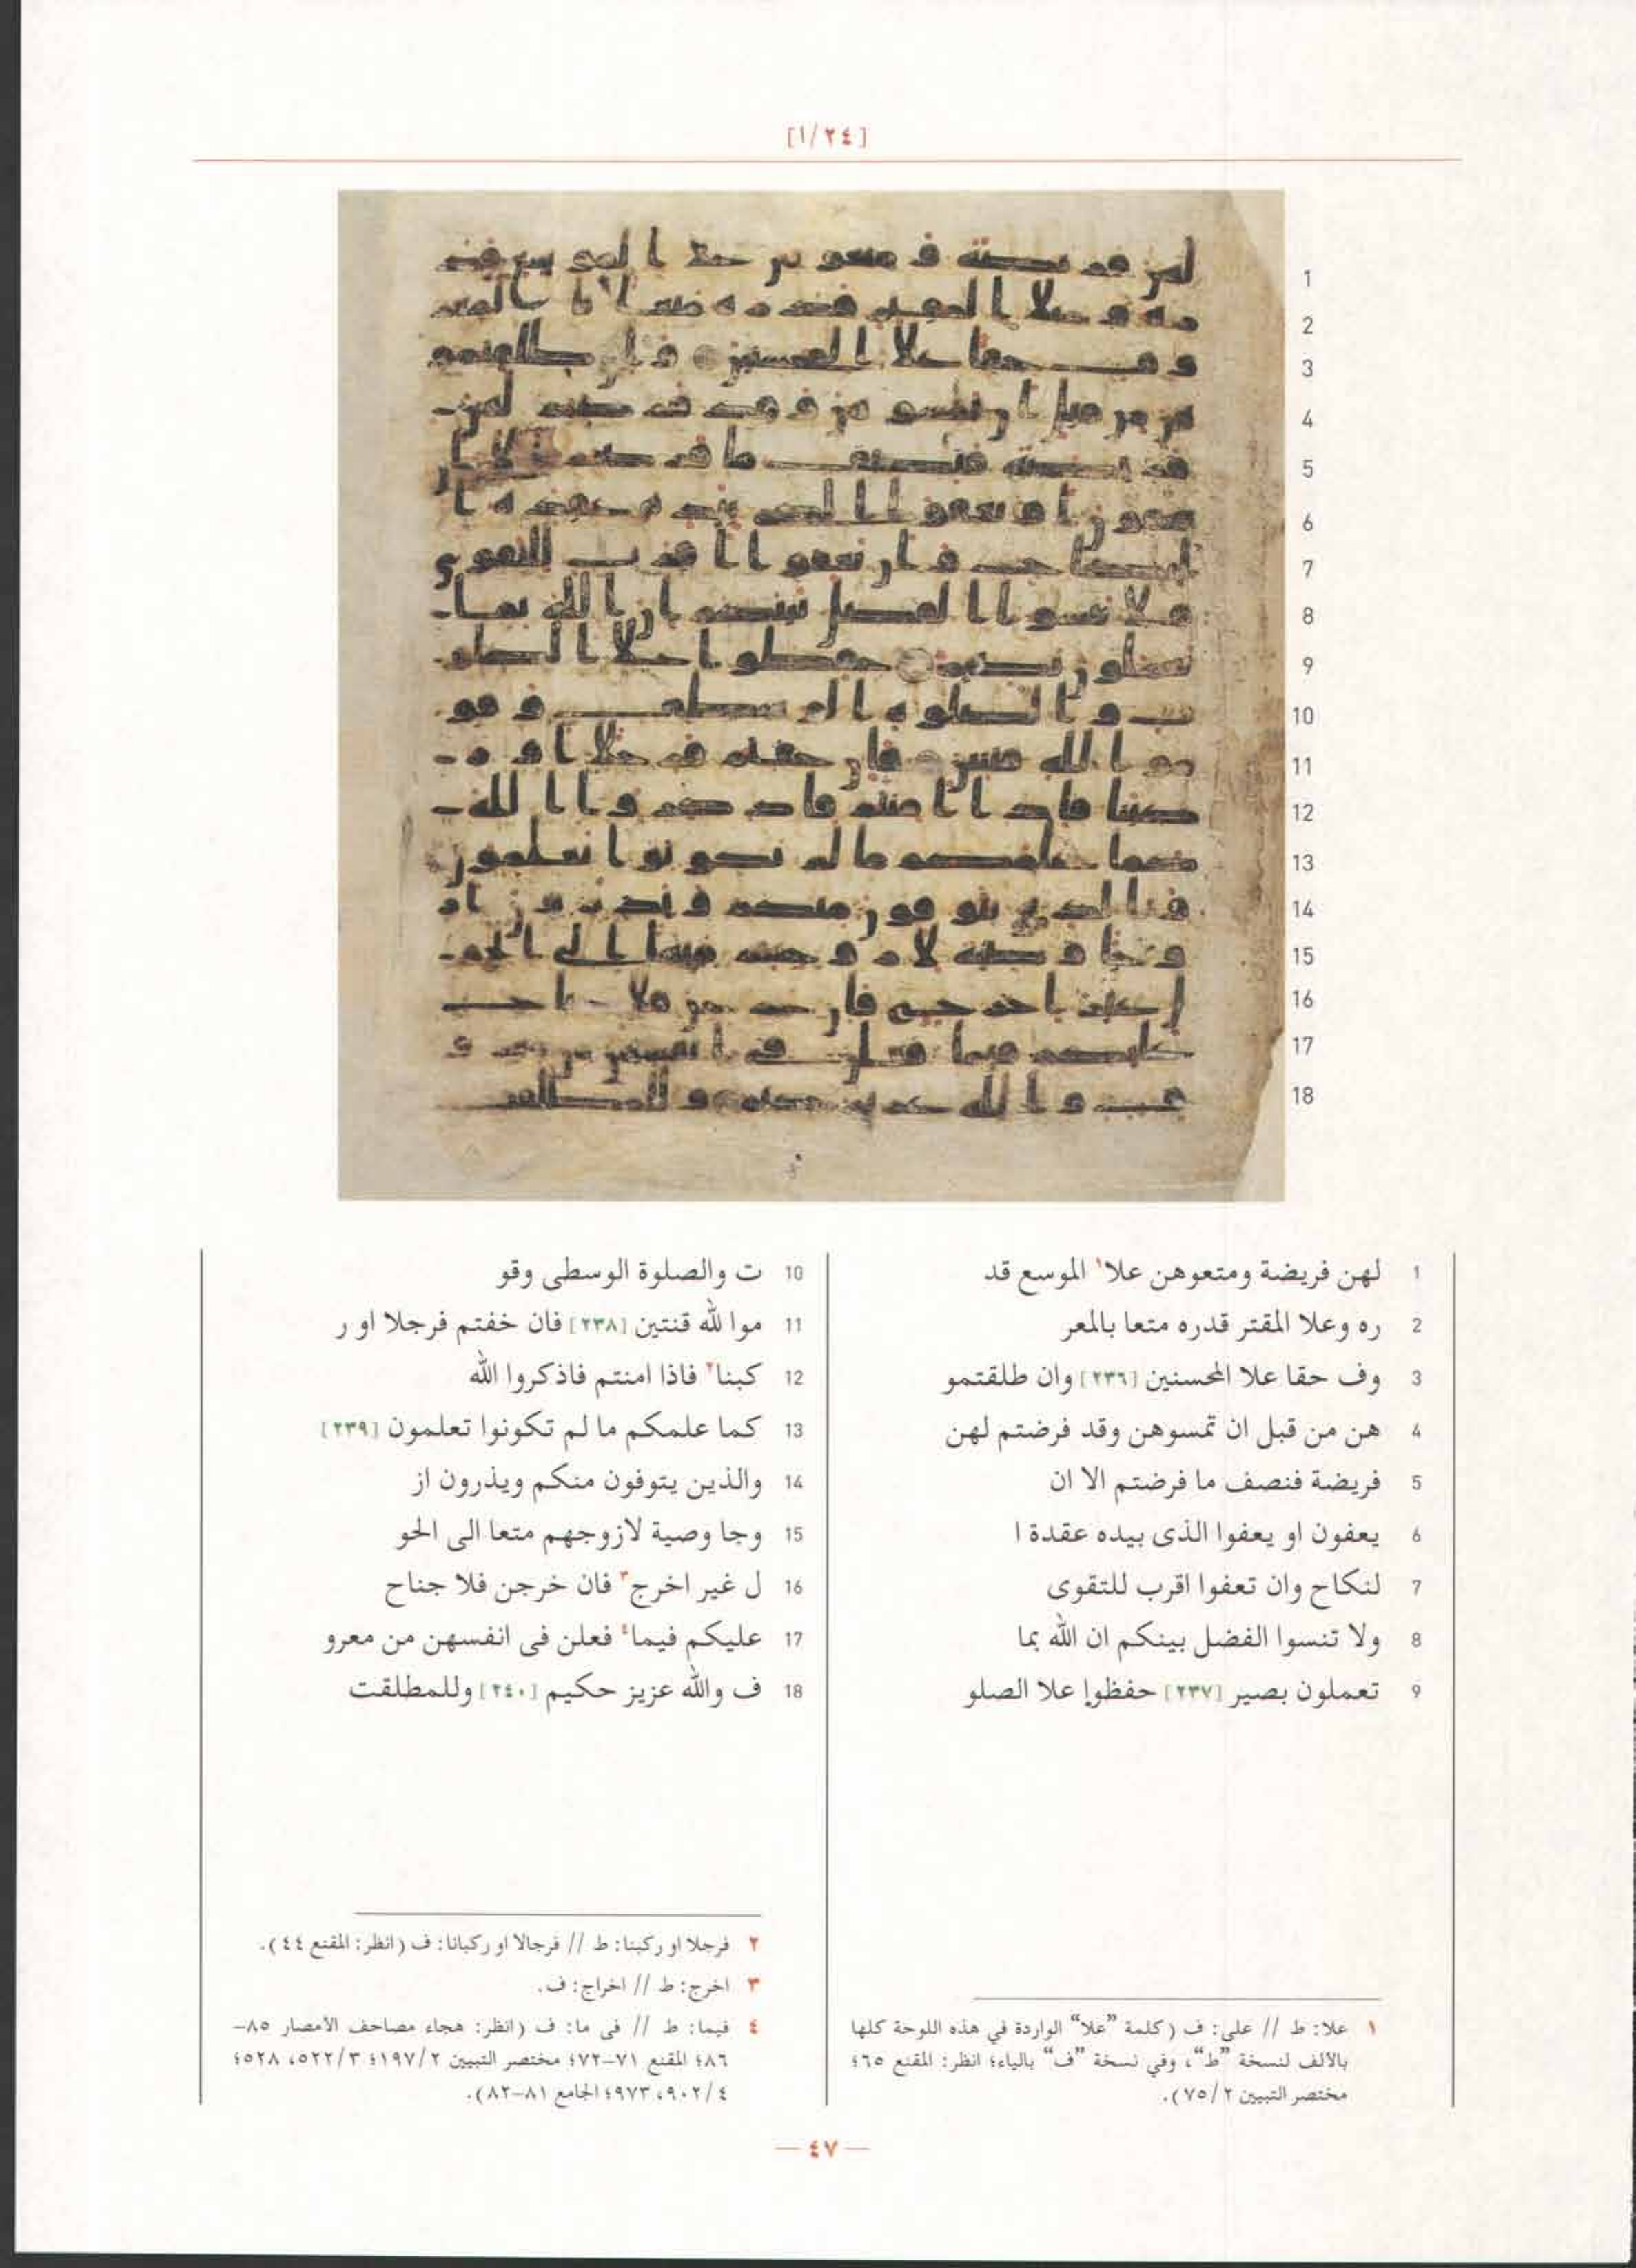 [١/٢٤]
1 لهن فريضة ومتعوهن علا١ الموسع قد
2 ره وعلا المقتر قدره متعا بالمعر
3 وف حقا علا المحسنين [٢٣٦] وان طلقتمو
4 هن من قبل ان تمسوهن وقد فرضتم لهن
5 فريضة فنصف ما فرضتم الا ان
6 يعفون او يعفوا الذى بيده عقدة ا
7 لنكاح وان تعفوا اقرب للتقوى
8 ولا تنسوا الفضل بينكم ان الله بما
9 تعملون بصير [٢٣٧] حفظوا علا الصلو
10 ت والصلوة الوسطى وقو
11 موا لله قنتين [٢٣٨] فان خفتم فرجلا او ر
12 كبنا٢ فاذا امنتم فاذكروا الله
13 كما علمكم ما لم تكونوا تعلمون [٢٣٩]
14 والذين يتوفون منكم ويذرون از
15 وجا وصية لازوجهم متعا الى الحو
16 ل غير اخرج٣ فان خرجن فلا جناح
17 عليكم فيما٤ فعلن فى انفسهن من معرو
18 ف والله عزيز حكيم [٢٤٠] وللمطلقت
١ علا: ط // على: ف (كلمة "علا" الواردة في هذه اللوحة كلها
بالألف لنسخة "ط"، وفي نسخة "ف" بالياء؛ انظر: المقنع ٦٥؛
مختصر التبيين ٢/ ٧٥).
٢ فرجلا او ركبنا: ط // فرجالا او ركبانا: ف (انظر: المقنع ٤٤).
٣ اخرج: ط // اخراج: ف.
٤ فيما: ط // فى ما: ف (انظر: هجاء مصاحف الأمصار ٨٥–
٨٦؛ المقنع ٧١–٧٢؛ مختصر التبيين ٢/ ١٩٧؛ ٣/ ٥٢٢، ٥٢٨؛
٤/ ٩٠٢، ٩٧٣؛ الجامع ٨١–٨٢).
— ٤٧ —